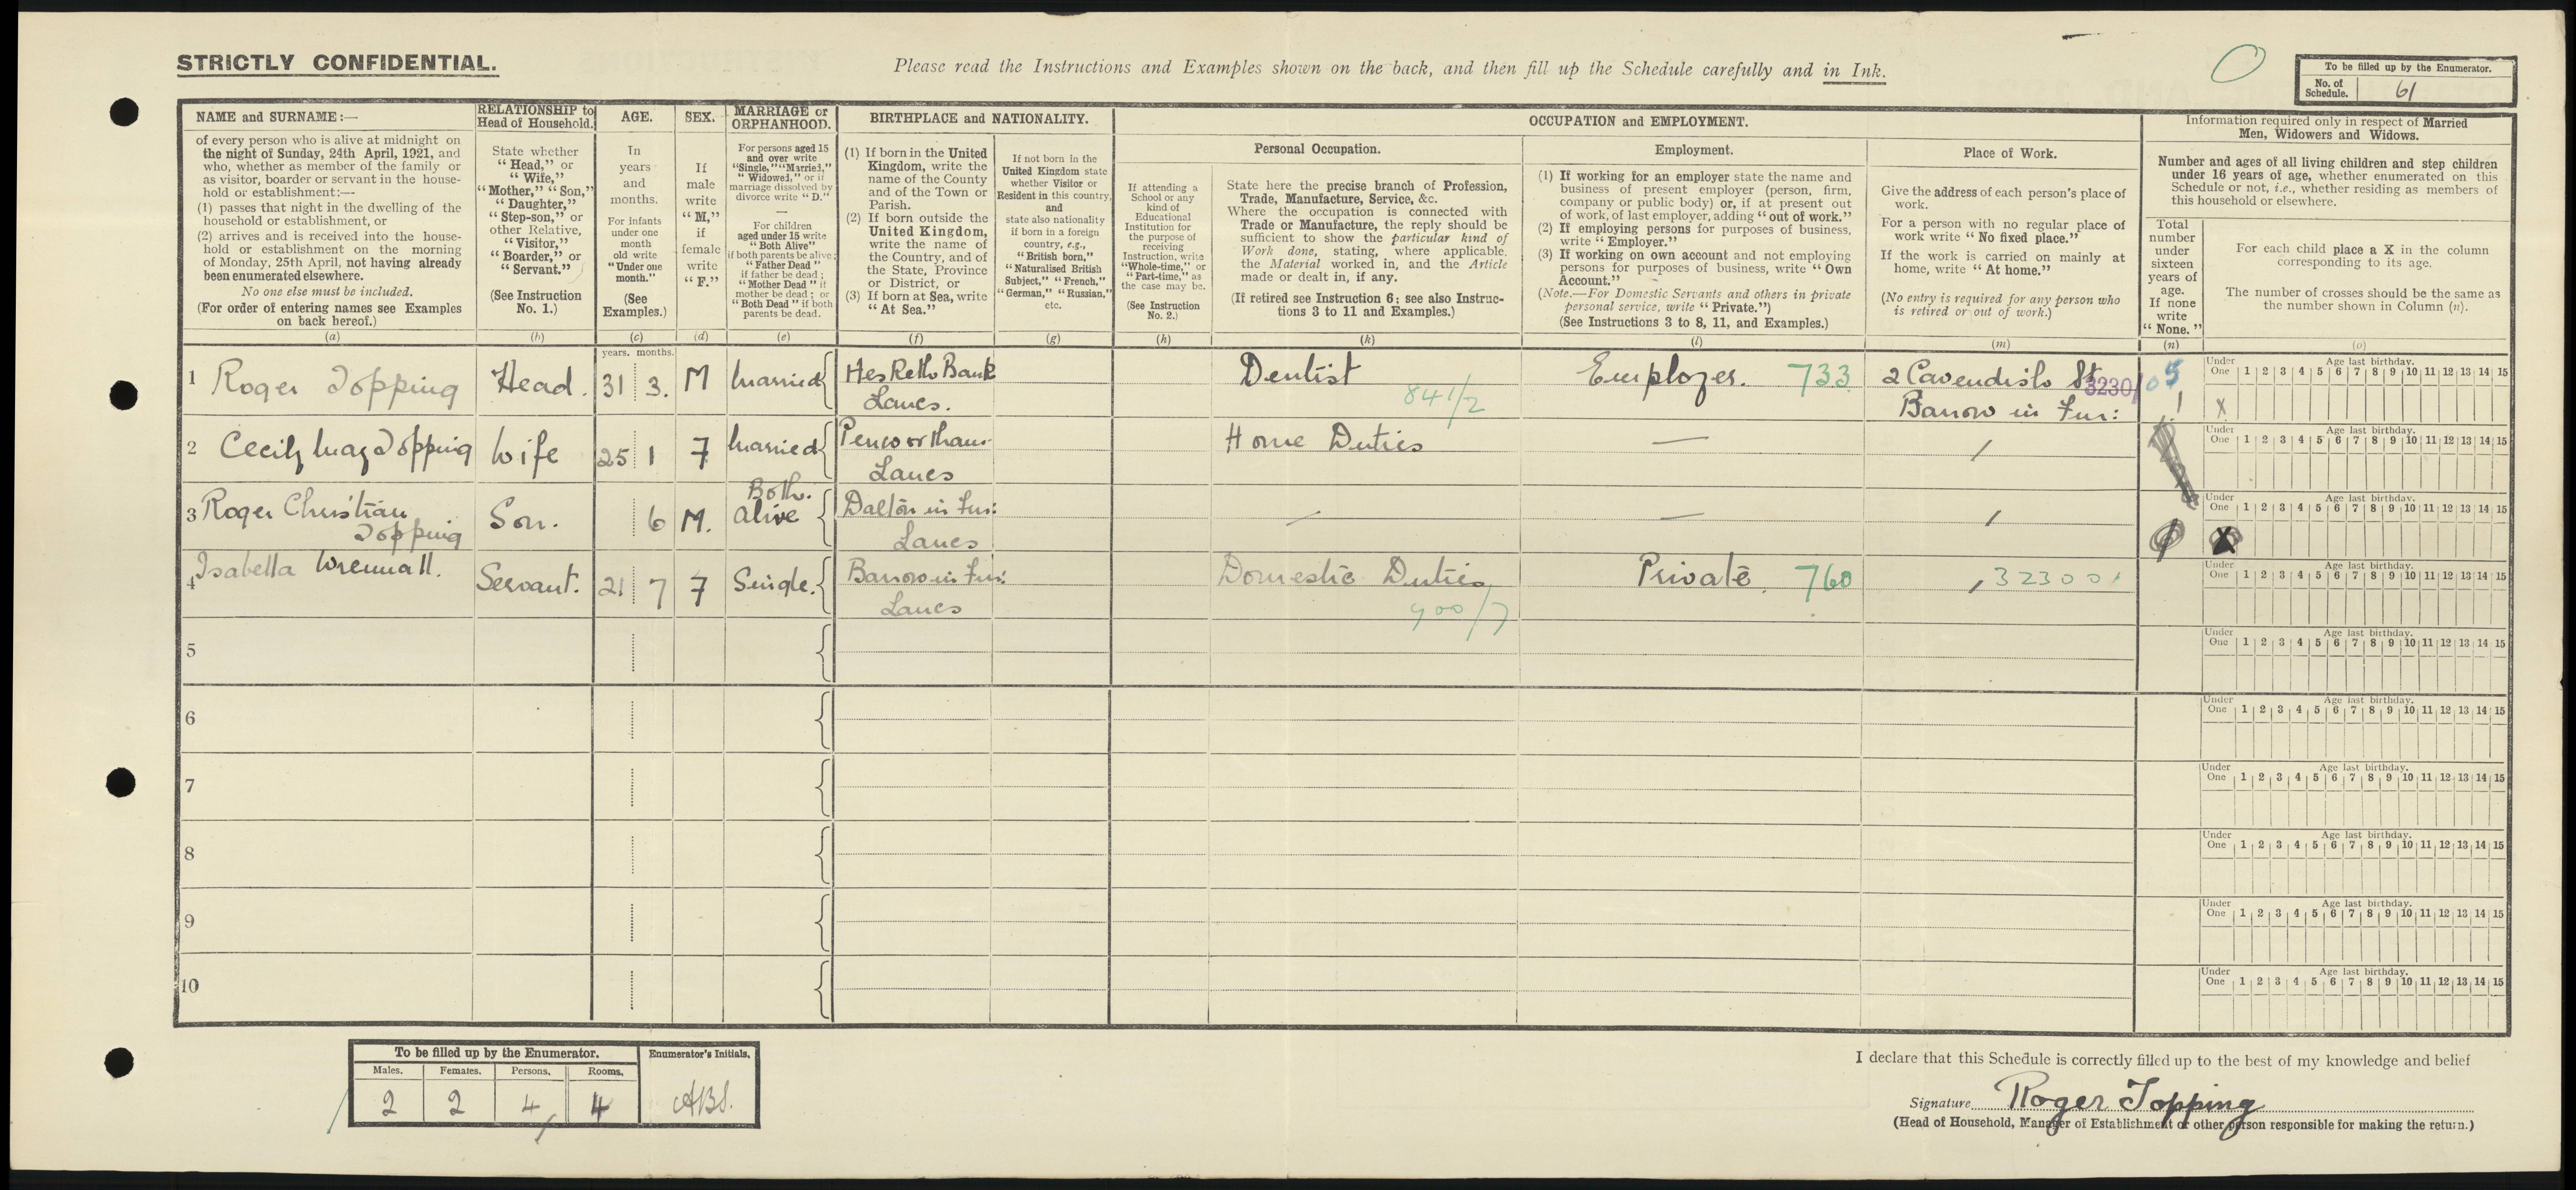 STRICTLY CONFIDENTIAL.
Please read the Instructions and Examples shown on the back, and then fill up the Schedule carefully and in Ink.
To be filled up by the Enumerator.
No. of Schedule. 61
NAME and SURNAME:—
of every person who is alive at midnight on
the night of Sunday, 24th April, 1921, and
who, whether as member of the family or
as visitor, boarder or servant in the house-
hold or establishment:—
(1) passes that night in the dwelling of the
household or establishment, or
(2) arrives and is received into the house-
hold or establishment on the morning
of Monday, 25th April, not having already
been enumerated elsewhere.
No one else must be included.
(For order of entering names see Examples
on back hereof.)
(a)
RELATIONSHIP to
Head of Household.
State whether
“Head,” or
“Wife,”
“Mother,” “Son,”
“Daughter,”
“Step-son,” or
other Relative,
“Visitor,”
“Boarder,” or
“Servant.”
(See Instruction
No. 1.)
(b)
AGE.
In
years
and
months.
For infants
under one
month
old write
“Under one
month.”
(See
Examples.)
(c)
SEX.
If
male
write
“M,”
if
female
write
“F.”
(d)
MARRIAGE or
ORPHANHOOD.
For persons aged 15
and over write
“Single,” “Married,”
“Widowed,” or if
marriage dissolved by
divorce write “D.”
—
For children
aged under 15 write
“Both Alive”
if both parents be alive;
“Father Dead”
if father be dead;
“Mother Dead” if
mother be dead; or
“Both Dead” if both
parents be dead.
(e)
BIRTHPLACE and NATIONALITY.
(1) If born in the United
Kingdom, write the
name of the County
and of the Town or
Parish.
(2) If born outside the
United Kingdom,
write the name of
the Country, and of
the State, Province
or District, or
(3) If born at Sea, write
“At Sea.”
(f)
If not born in the
United Kingdom state
whether Visitor or
Resident in this country,
and
state also nationality
if born in a foreign
country, e.g.,
“British born,”
“Naturalised British
Subject,” “French,”
“German,” “Russian,”
etc.
(g)
OCCUPATION and EMPLOYMENT.
If attending a
School or any
kind of
Educational
Institution for
the purpose of
receiving
Instruction, write
“Whole-time,” or
“Part-time,” as
the case may be.
(See Instruction
No. 2.)
(h)
Personal Occupation.
State here the precise branch of Profession,
Trade, Manufacture, Service, &c.
Where the occupation is connected with
Trade or Manufacture, the reply should be
sufficient to show the particular kind of
Work done, stating, where applicable,
the Material worked in, and the Article
made or dealt in, if any.
(If retired see Instruction 6; see also Instruc-
tions 3 to 11 and Examples.)
(k)
Employment.
(1) If working for an employer state the name and
business of present employer (person, firm,
company or public body) or, if at present out
of work, of last employer, adding “out of work.”
(2) If employing persons for purposes of business,
write “Employer.”
(3) If working on own account and not employing
persons for purposes of business, write “Own
Account.”
(Note.—For Domestic Servants and others in private
personal service, write “Private.”)
(See Instructions 3 to 8, 11, and Examples.)
(l)
Place of Work.
Give the address of each person's place of
work.
For a person with no regular place of
work write “No fixed place.”
If the work is carried on mainly at
home, write “At home.”
(No entry is required for any person who
is retired or out of work.)
(m)
Information required only in respect of Married
Men, Widowers and Widows.
Number and ages of all living children and step children
under 16 years of age, whether enumerated on this
Schedule or not, i.e., whether residing as members of
this household or elsewhere.
Total
number
under
sixteen
years of
age.
If none
write
“None.”
(n)
For each child place a X in the column
corresponding to its age.
The number of crosses should be the same as
the number shown in Column (n).
(o)
years. months.
1 Roger Topping Head. 31 3. M Married Hesketh Bank Dentist Employer. 733 2 Cavendish St 3230 Under One Age last birthday. 1 2 3 4 5 6 7 8 9 10 11 12 13 14 15
Lancs. 841/2 Barrow in Fur: 1 X
2 Cecily May Topping Wife 25 1 F Married Penwortham Home Duties — Under One Age last birthday. 1 2 3 4 5 6 7 8 9 10 11 12 13 14 15
Lancs
3 Roger Christian Son. 6 M. Both Alive Dalton in Fur: — — Under One Age last birthday. 1 2 3 4 5 6 7 8 9 10 11 12 13 14 15
Topping Lancs X
4 Isabella Wrennall. Servant. 21 7 F Single. Barrow in Fur: Domestic Duties Private. 760 323001 Under One Age last birthday. 1 2 3 4 5 6 7 8 9 10 11 12 13 14 15
Lancs 900/7
5 Under One Age last birthday. 1 2 3 4 5 6 7 8 9 10 11 12 13 14 15
6 Under One Age last birthday. 1 2 3 4 5 6 7 8 9 10 11 12 13 14 15
7 Under One Age last birthday. 1 2 3 4 5 6 7 8 9 10 11 12 13 14 15
8 Under One Age last birthday. 1 2 3 4 5 6 7 8 9 10 11 12 13 14 15
9 Under One Age last birthday. 1 2 3 4 5 6 7 8 9 10 11 12 13 14 15
10 Under One Age last birthday. 1 2 3 4 5 6 7 8 9 10 11 12 13 14 15
To be filled up by the Enumerator. Enumerator's Initials.
Males. Females. Persons. Rooms.
2 2 4 4 ABS.
I declare that this Schedule is correctly filled up to the best of my knowledge and belief
Signature Roger Topping
(Head of Household, Manager of Establishment or other person responsible for making the return.)